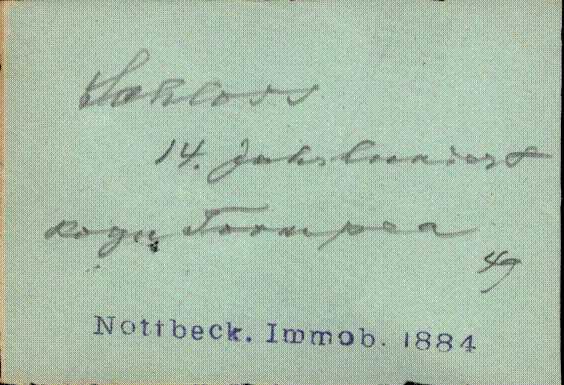 Schloss
14. Jahrhundert
kogu Toompea
49
Nottbeck. Immob. 1884